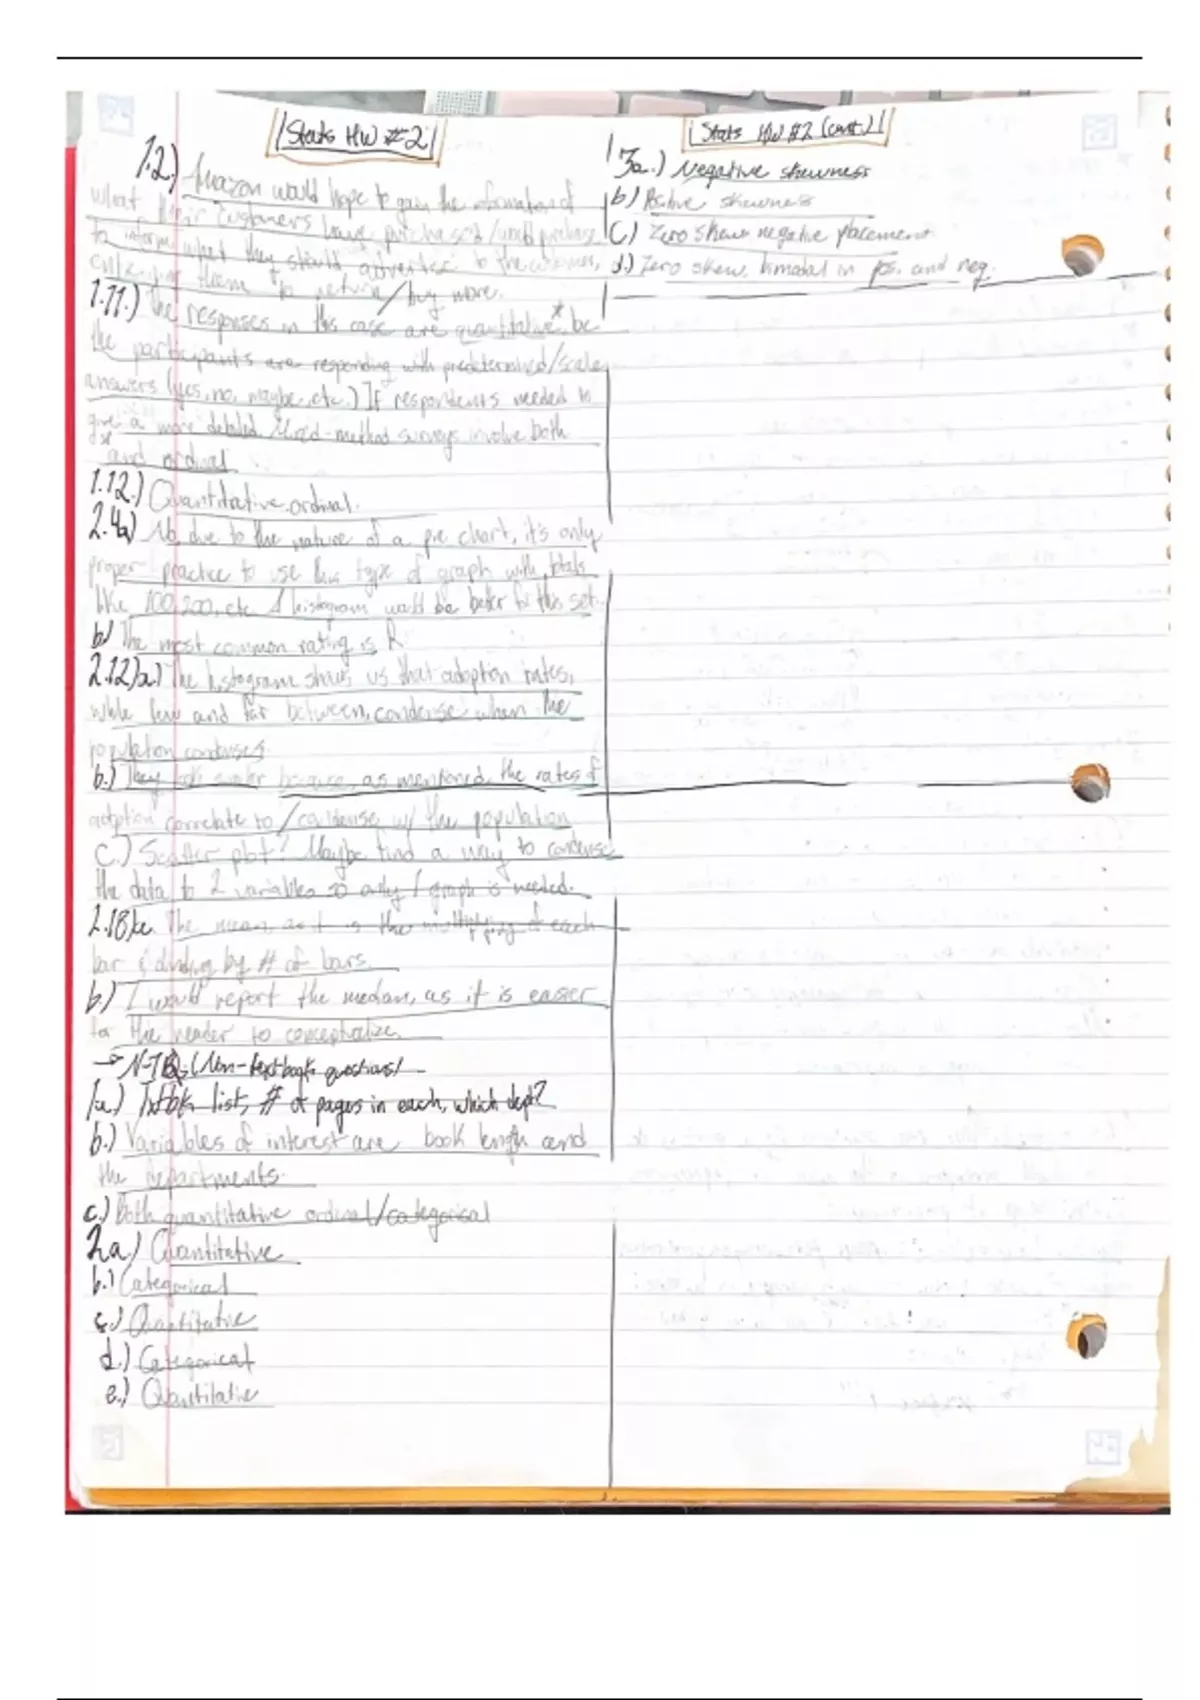 Stats HW #2
1.2.) Amazon would hope to gain the information of
what their customers have purchased/would purchase
to inform what they should advertise to the customer,
them to return/buy more.
1.11.) The responses in this case are quantitative* bc
the participants are responding with predetermined/scale
answers (yes, no, maybe, etc.) If respondents needed to
give a more detailed Mixed-method surveys involve both
and ordinal
1.12.) Quantitative ordinal.
2.4a) No, due to the nature of a pie chart, it's only
proper practice to use this type of graph with totals
like 100, 200, etc. A histogram would be better for this set.
b) The most common rating is R
2.12)a.) The histogram shows us that adoption rates,
while few and far between, condense when the
population condenses.
b.) They look similar because, as mentioned, the rates of
adoption correlate to/condense w/ the population
c.) Scatter plot? Maybe find a way to condense
the data to 2 variables so only 1 graph is needed.
2.18) The mean, as it is the multiplying of each
bar & dividing by # of bars.
b.) I would report the median, as it is easier
for the reader to conceptualize.
→ N-TBQ: (Non-textbook questions)
1a.) Txtbk list, # of pages in each, which dept?
b.) Variables of interest are book length and
the departments.
c.) Both quantitative ordinal/categorical
2a.) Quantitative
b.) Categorical
c.) Quantitative
d.) Categorical
e.) Quantitative
Stats HW #2 (cont.)
3a.) Negative skewness
b) Positive skewness
c) Zero skew negative placement
d.) Zero skew, bimodal in pos. and neg.